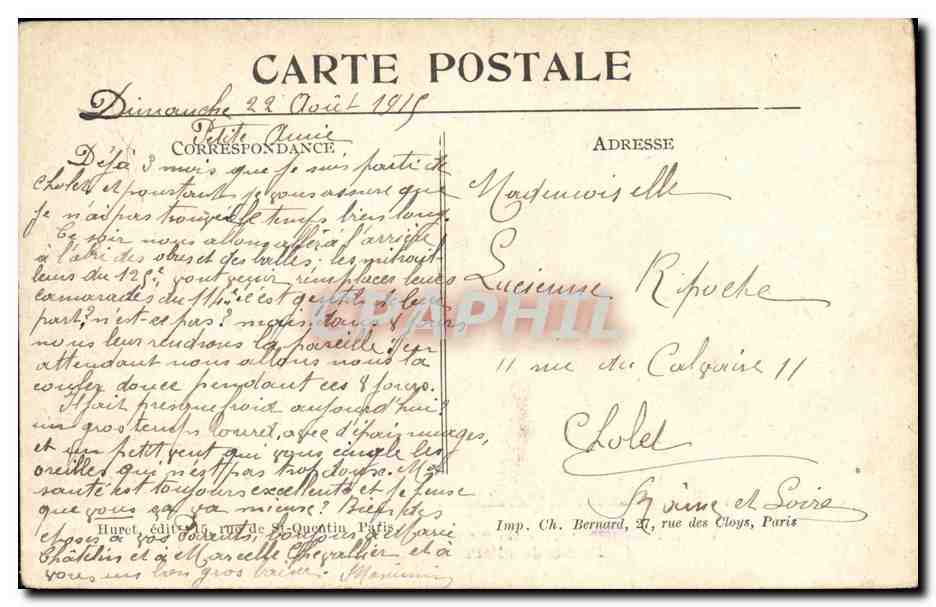 CARTE POSTALE
Dimanche 22 Août 1915
Petite Amie
CORRESPONDANCE
Déjà 3 mois que je suis parti de
Cholet et pourtant je vous assure que
je n'ai pas trouvé le temps bien long.
Ce soir nous allons aller à l'arrière
à l'abri des obus et des balles; les mitrail-
leurs du 125e vont venir remplacer leurs
camarades du 114e c'est gentil de leur
part, n'est-ce pas? mais dans 8 jours
nous leur rendrons la pareille; en
attendant nous allons nous la
couler douce pendant ces 8 jours.
Il fait presque froid aujourd'hui;
un gros temps lourd, avec d'épais nuages,
et un petit vent qui vous cingle les
oreilles qui n'est pas trop doux. Ma
santé est toujours excellente et je pense
que vous ça va mieux? Bien des
choses à vos Parents, bonjour à Marie
Châtelin et à Marcelle Chevallier et à
vous un bon gros baiser.
ADRESSE
Mademoiselle
Lucienne Ripoche
11 rue du Calvaire 11
Cholet
Maine et Loire
Huret, édit. 15, rue de St-Quentin Paris
Imp. Ch. Bernard, 27, rue des Cloys, Paris
CPAPHIL